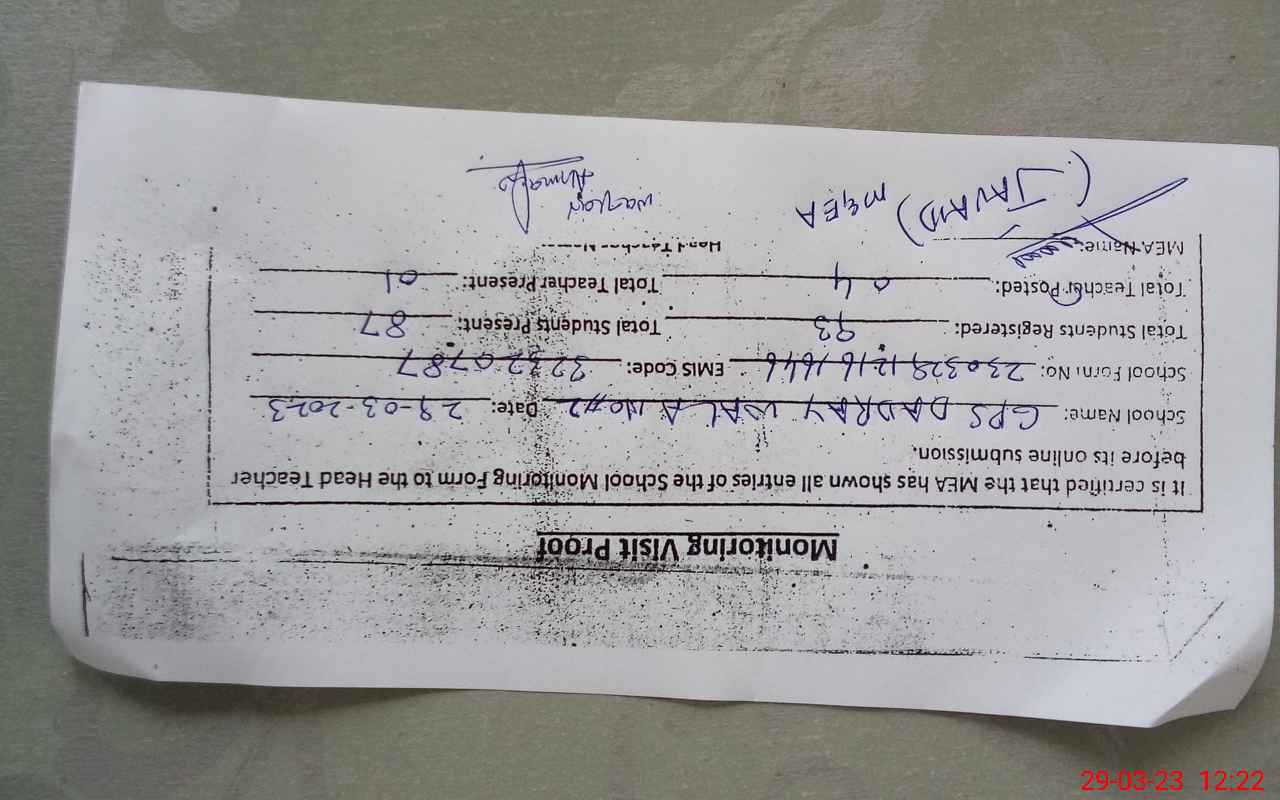 Monitoring Visit Proof
It is certified that the MEA has shown all entries of the School Monitoring Form to the Head Teacher
before its online submission.
School Name: GPS DADRAY WALA NO#2 Date: 29-03-2023
School Form No: EMIS Code: 32320787
Total Students Registered: 93 Total Students Present: 87
Total Teacher Posted: 04 Total Teacher Present: 01
MEA Name: Head Teacher
(JAVAID) MEA
Ahmad
29-03-23 12:22